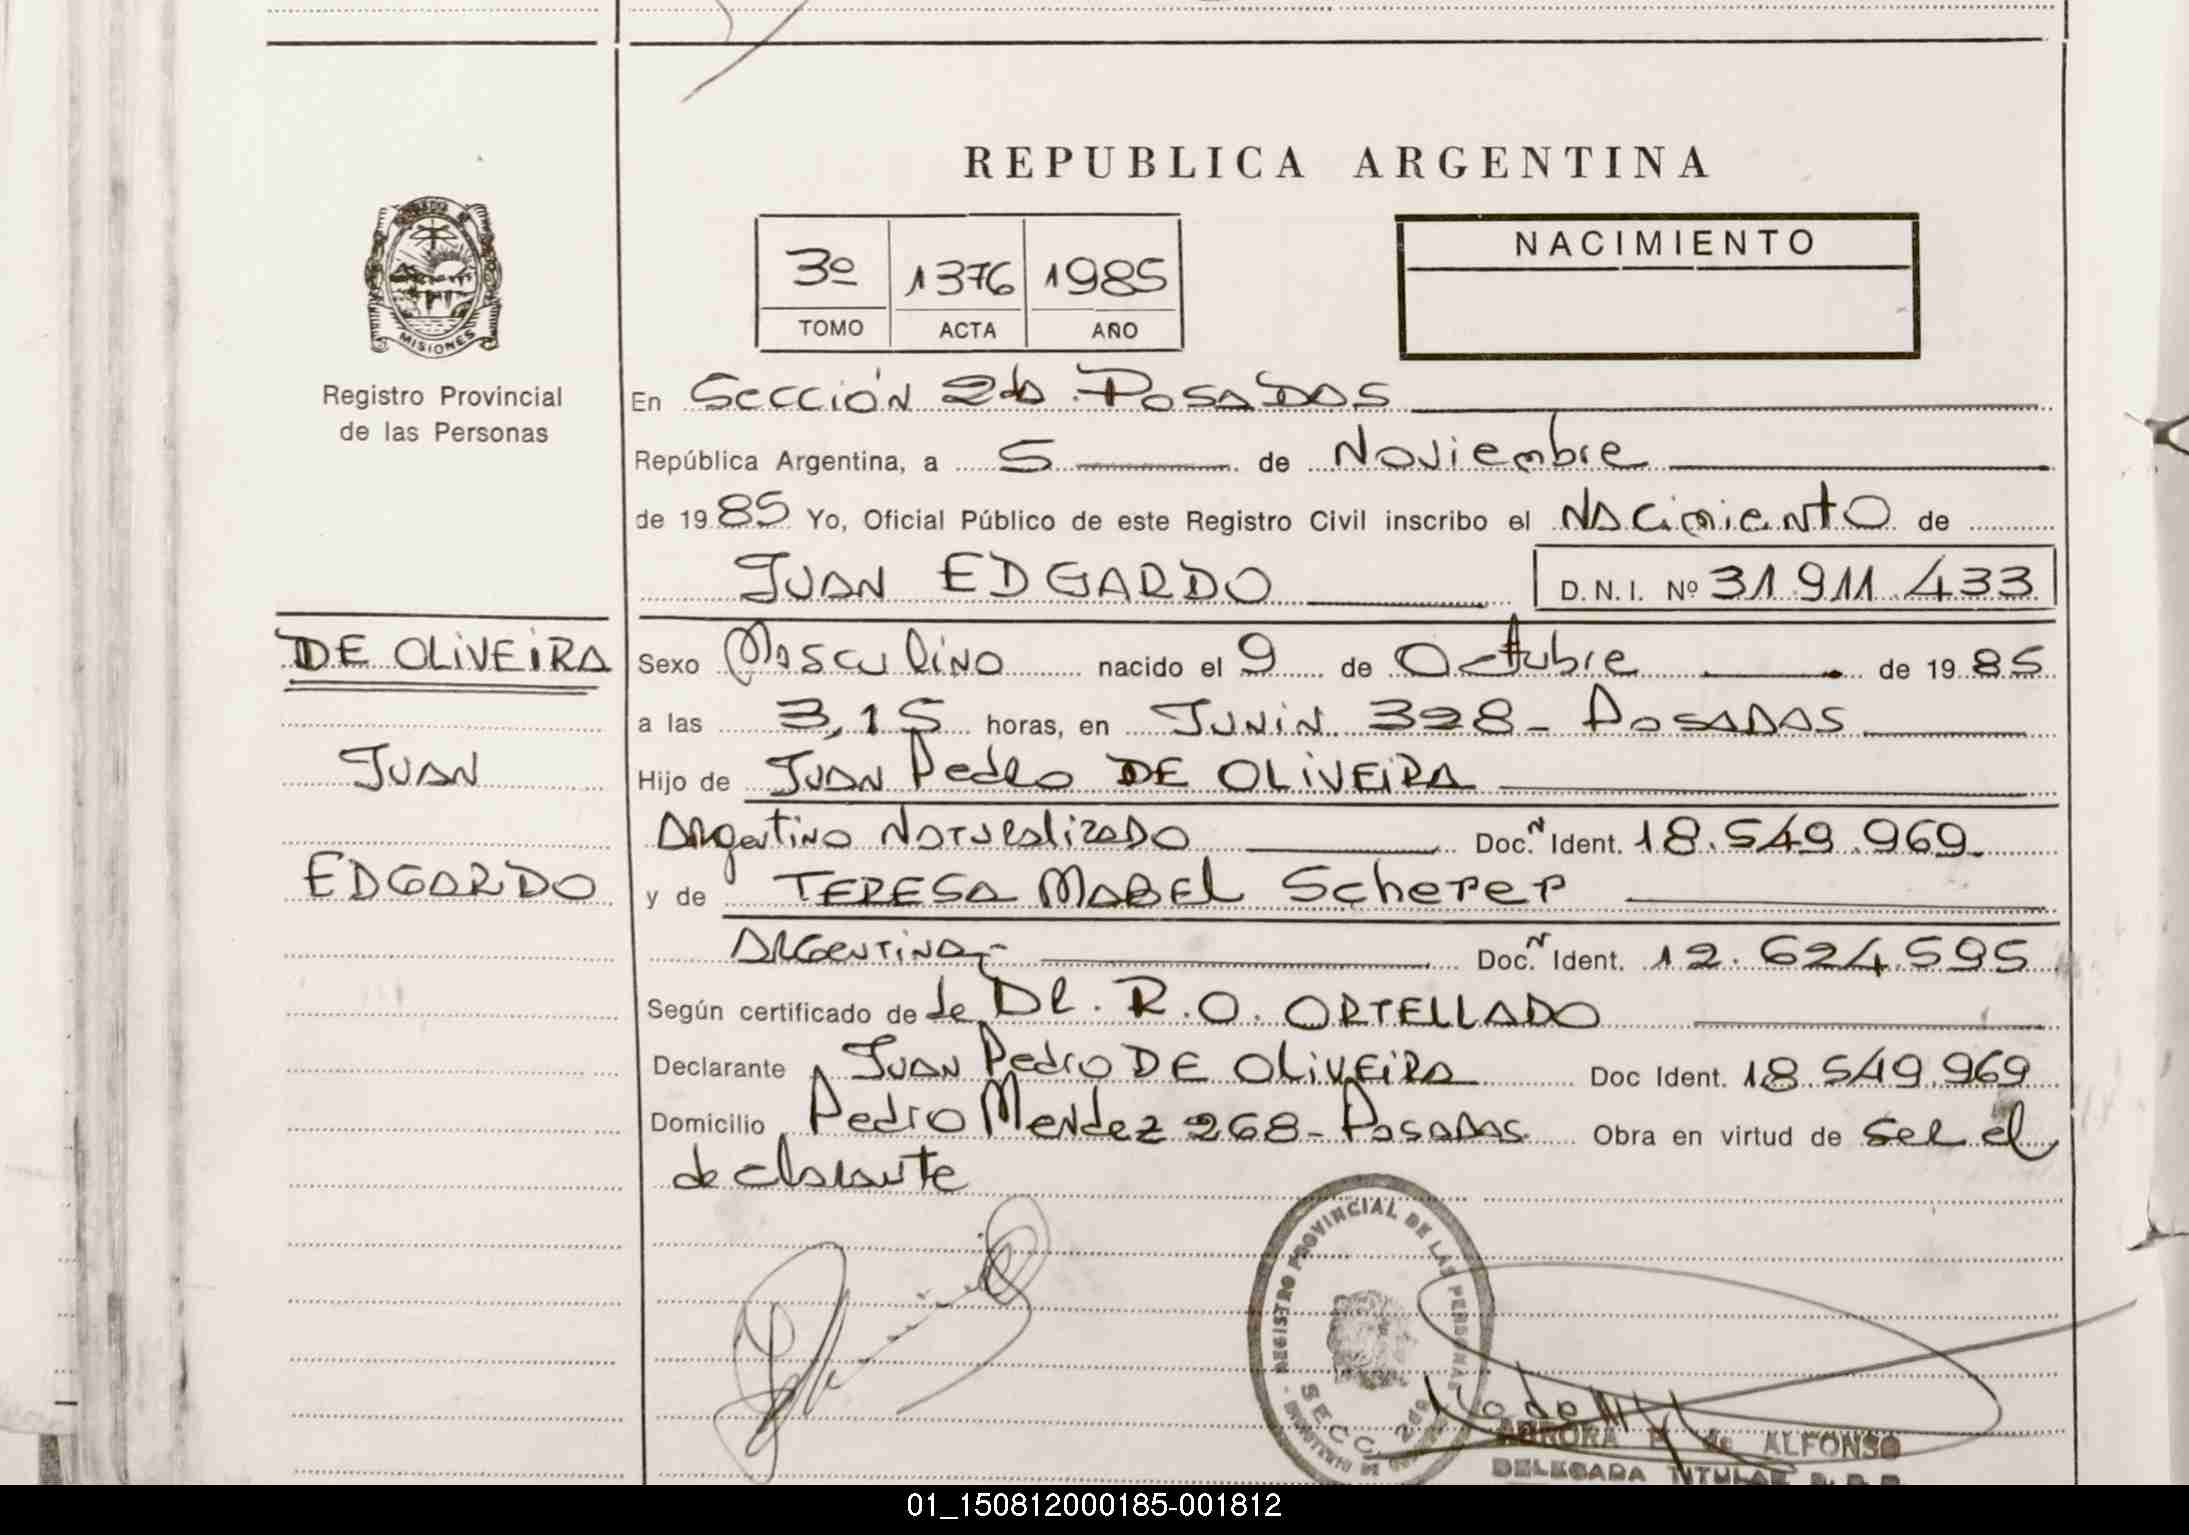 REPUBLICA ARGENTINA
3º 1376 1985
TOMO ACTA AÑO
NACIMIENTO
MISIONES
Registro Provincial
de las Personas
DE OLIVEIRA
JUAN
EDGARDO
En Sección 2da. POSADAS
República Argentina, a 5 de Noviembre
de 1985 Yo, Oficial Público de este Registro Civil inscribo el Nacimiento de
JUAN EDGARDO D.N.I. Nº 31.911.433
Sexo Masculino nacido el 9 de Octubre de 1985
a las 3,15 horas, en JUNIN 328 - POSADAS
Hijo de JUAN Pedro DE OLIVEIRA
Argentino Naturalizado Doc. N Ident. 18.549.969
y de TERESA MABEL Scherer
ARGENTINA - Doc. N Ident. 12.624.595
Según certificado de de DR. R.O. ORTELLADO
Declarante JUAN Pedro DE OLIVEIRA Doc Ident. 18.549.969
Domicilio Pedro Mendez 268 - Posadas Obra en virtud de ser el
declarante
REGISTRO PROVINCIAL DE LAS PERSONAS
SECC. 2da
AURORA de ALFONSO
DELEGADA TITULAR
01_150812000185-001812